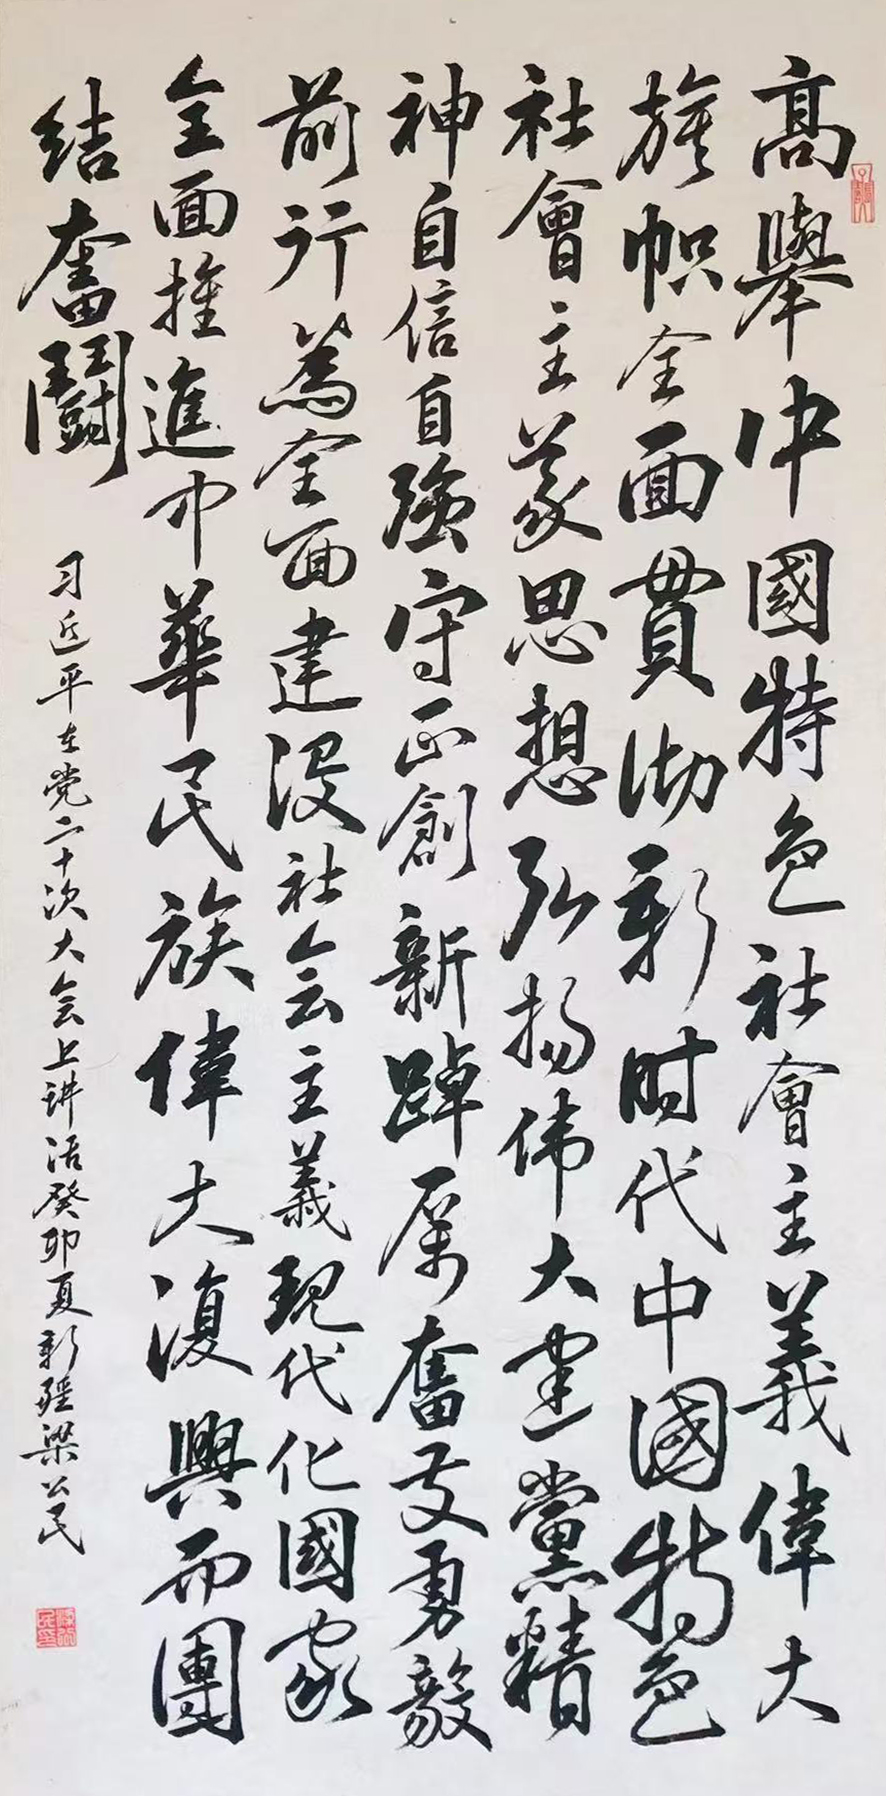 高舉中國特色社會主義偉大
旗帜全面貫彻新时代中國特色
社會主义思想弘扬伟大建黨精
神自信自強守正創新踔厉奮发勇毅
前行為全面建设社会主義現代化國家
全面推進中華民族偉大復興而團
结奮鬪
习近平在党二十次大会上讲话癸卯夏新疆梁公民